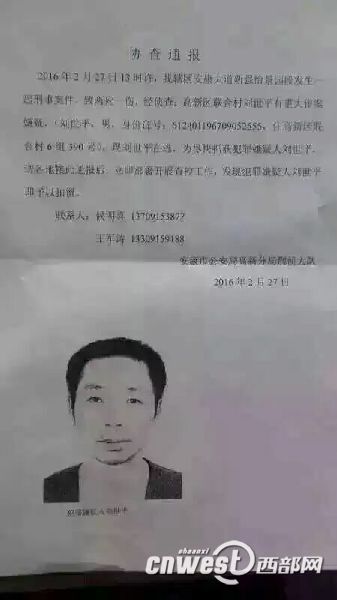 协查通报
2016年2月27日13时许，我辖区安康大道勘盛怡景园段发生一
起刑事案件，致两死一伤，经侦查：高新区联合村刘世平有重大作案
嫌疑，（刘世平、男、身份证号：612401196709052555，住高新区联
合村6组390号），现刘世平在逃，为尽快抓获犯罪嫌疑人刘世平，
请各地接此通报后，立即部署开展查控工作，发现犯罪嫌疑人刘世平
即予以扣留。
联系人：侯 13709153877
王军涛 13309159188
安康市公安局高新分局刑侦大队
2016年2月27日
犯罪嫌疑人刘世平
shaanxi
cnwest西部网